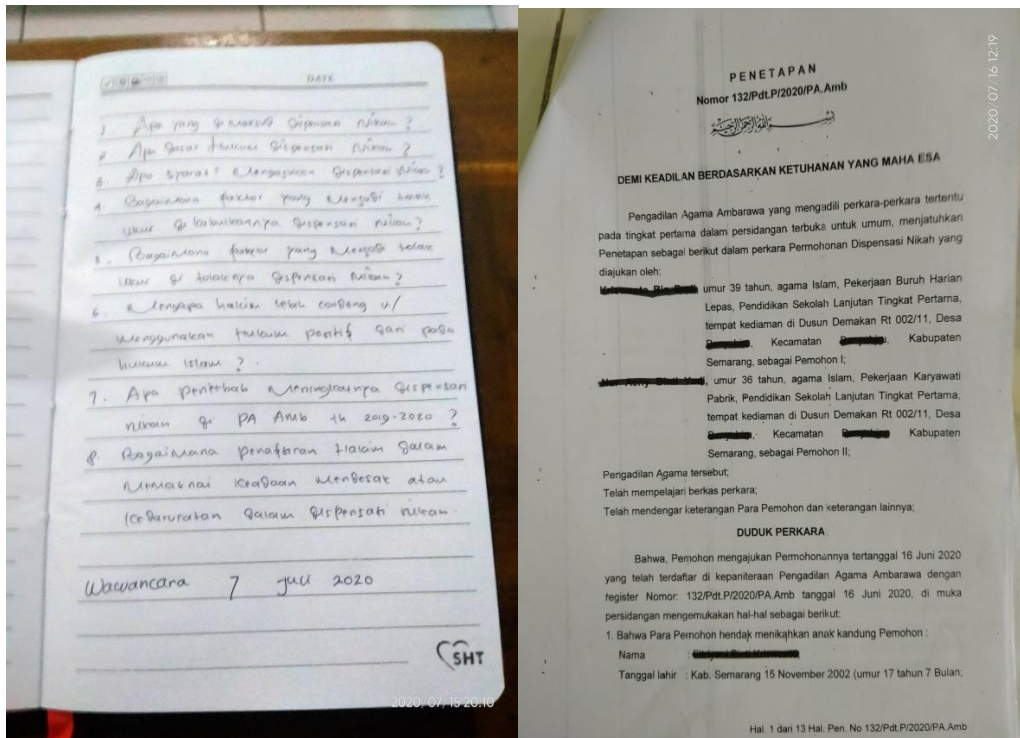 DATE
1. Apa yang di maksud dispensasi nikah ?
2. Apa dasar hukum dispensasi nikah ?
3. Apa syarat² mengajukan dispensasi nikah ?
4. Bagaimana faktor yang menjadi tolak
ukur di kabulkannya dispensasi nikah ?
5. Bagaimana faktor yang menjadi tolak
ukur di tolaknya dispensasi nikah ?
6. Mengapa hakim lebih condong u/
menggunakan hukum positif dari pada
hukum islam ?
7. Apa penyebab meningkatnya dispensasi
nikah di PA Amb th 2019-2020 ?
8. Bagaimana penafsiran hakim dalam
memaknai keadaan mendesak atau
kedaruratan dalam dispensasi nikah.
Wawancara 7 Juli 2020
SHT
2020/07/15 20:10
PENETAPAN
Nomor 132/Pdt.P/2020/PA.Amb
بسم الله الرحمن الرحيم
DEMI KEADILAN BERDASARKAN KETUHANAN YANG MAHA ESA
Pengadilan Agama Ambarawa yang mengadili perkara-perkara tertentu
pada tingkat pertama dalam persidangan terbuka untuk umum, menjatuhkan
Penetapan sebagai berikut dalam perkara Permohonan Dispensasi Nikah yang
diajukan oleh:
umur 39 tahun, agama Islam, Pekerjaan Buruh Harian
Lepas, Pendidikan Sekolah Lanjutan Tingkat Pertama,
tempat kediaman di Dusun Demakan Rt 002/11, Desa
, Kecamatan , Kabupaten
Semarang, sebagai Pemohon I;
, umur 36 tahun, agama Islam, Pekerjaan Karyawati
Pabrik, Pendidikan Sekolah Lanjutan Tingkat Pertama,
tempat kediaman di Dusun Demakan Rt 002/11, Desa
, Kecamatan Kabupaten
Semarang, sebagai Pemohon II;
Pengadilan Agama tersebut;
Telah mempelajari berkas perkara;
Telah mendengar keterangan Para Pemohon dan keterangan lainnya;
DUDUK PERKARA
Bahwa, Pemohon mengajukan Permohonannya tertanggal 16 Juni 2020
yang telah terdaftar di kepaniteraan Pengadilan Agama Ambarawa dengan
register Nomor: 132/Pdt.P/2020/PA.Amb tanggal 16 Juni 2020, di muka
persidangan mengemukakan hal-hal sebagai berikut:
1. Bahwa Para Pemohon hendak menikahkan anak kandung Pemohon :
Nama :
Tanggal lahir : Kab. Semarang 15 November 2002 (umur 17 tahun 7 Bulan;
Hal. 1 dari 13 Hal. Pen. No 132/Pdt.P/2020/PA.Amb
2020/07/16 12:19